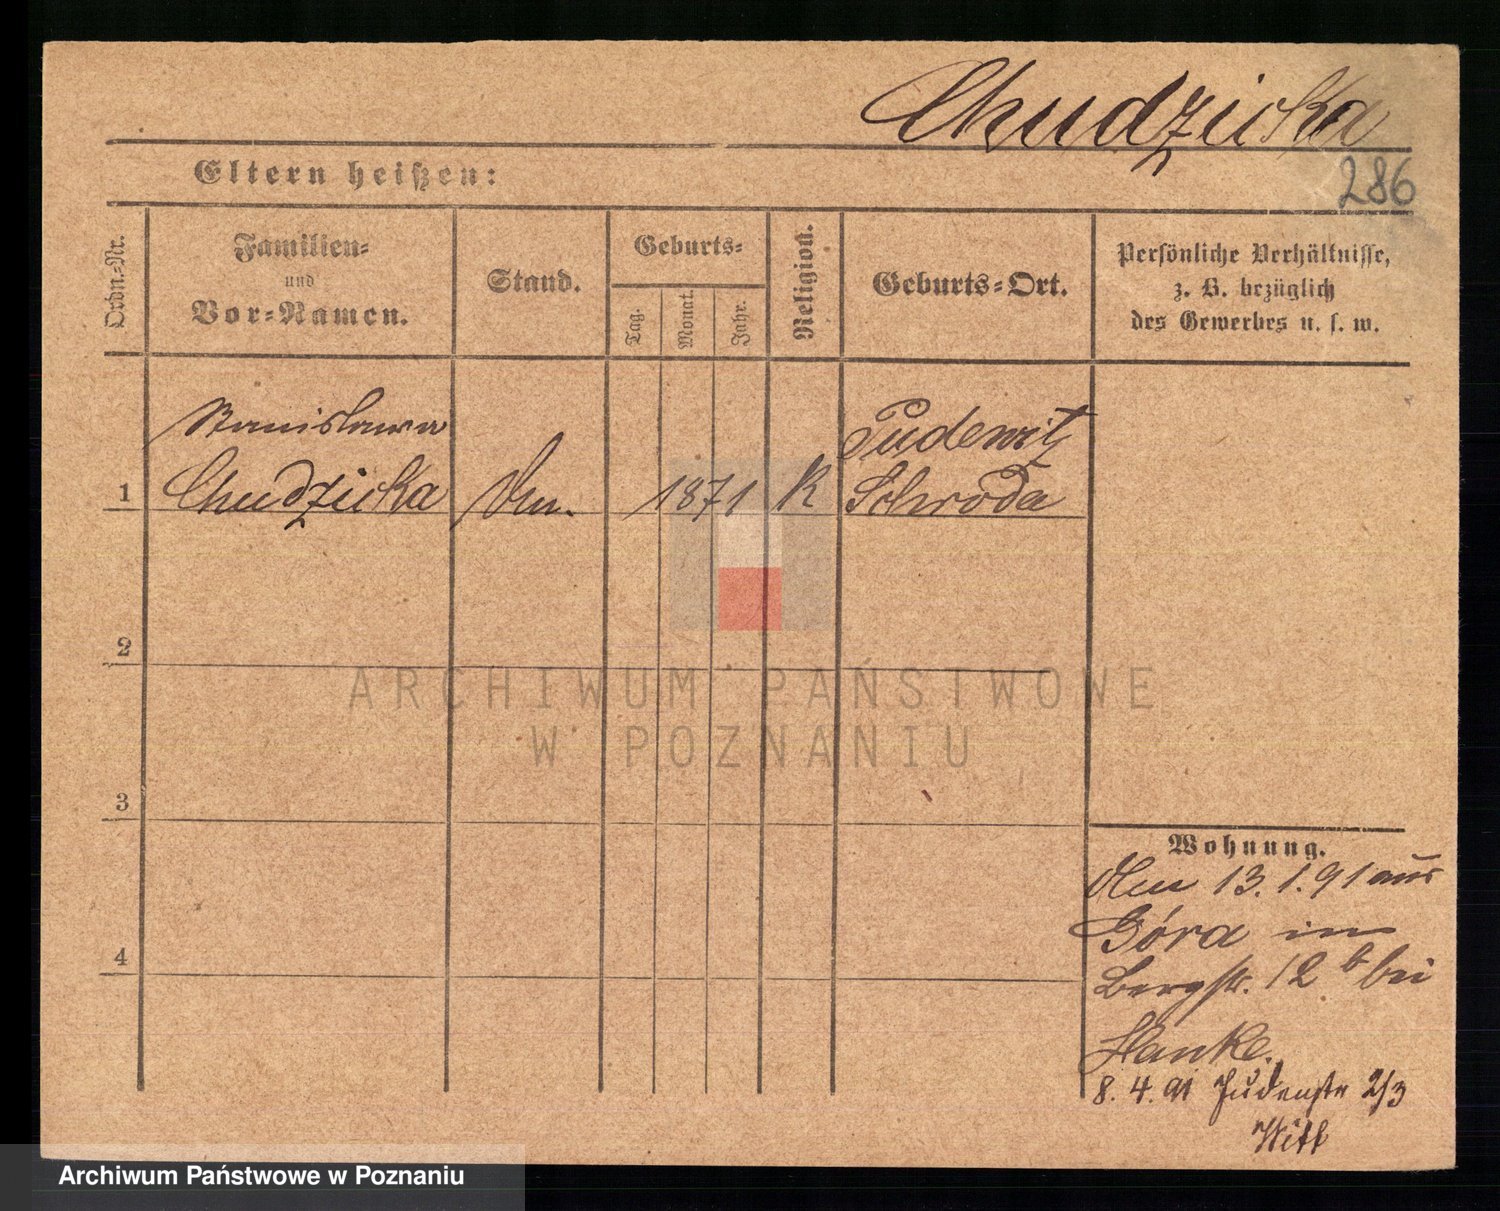 Chudzicka
286
Eltern heißen:
Ordn.-Nr.
Familien-
und
Vor-Namen.
Stand.
Geburts-
Tag.
Monat.
Jahr.
Religion.
Geburts-Ort.
Persönliche Verhältnisse,
z. B. bezüglich
des Gewerbes u. s. w.
Stanislawa
Chudzicka
1871
K
Pudewitz
Schroda
1
2
3
4
ARCHIWUM PAŃSTWOWE
W POZNANIU
Wohnung.
13.1.91 aus
Góra in
Bergstr. 12b bei
Hanke.
8.4.91 Judenstr 2/3
Witt
Archiwum Państwowe w Poznaniu